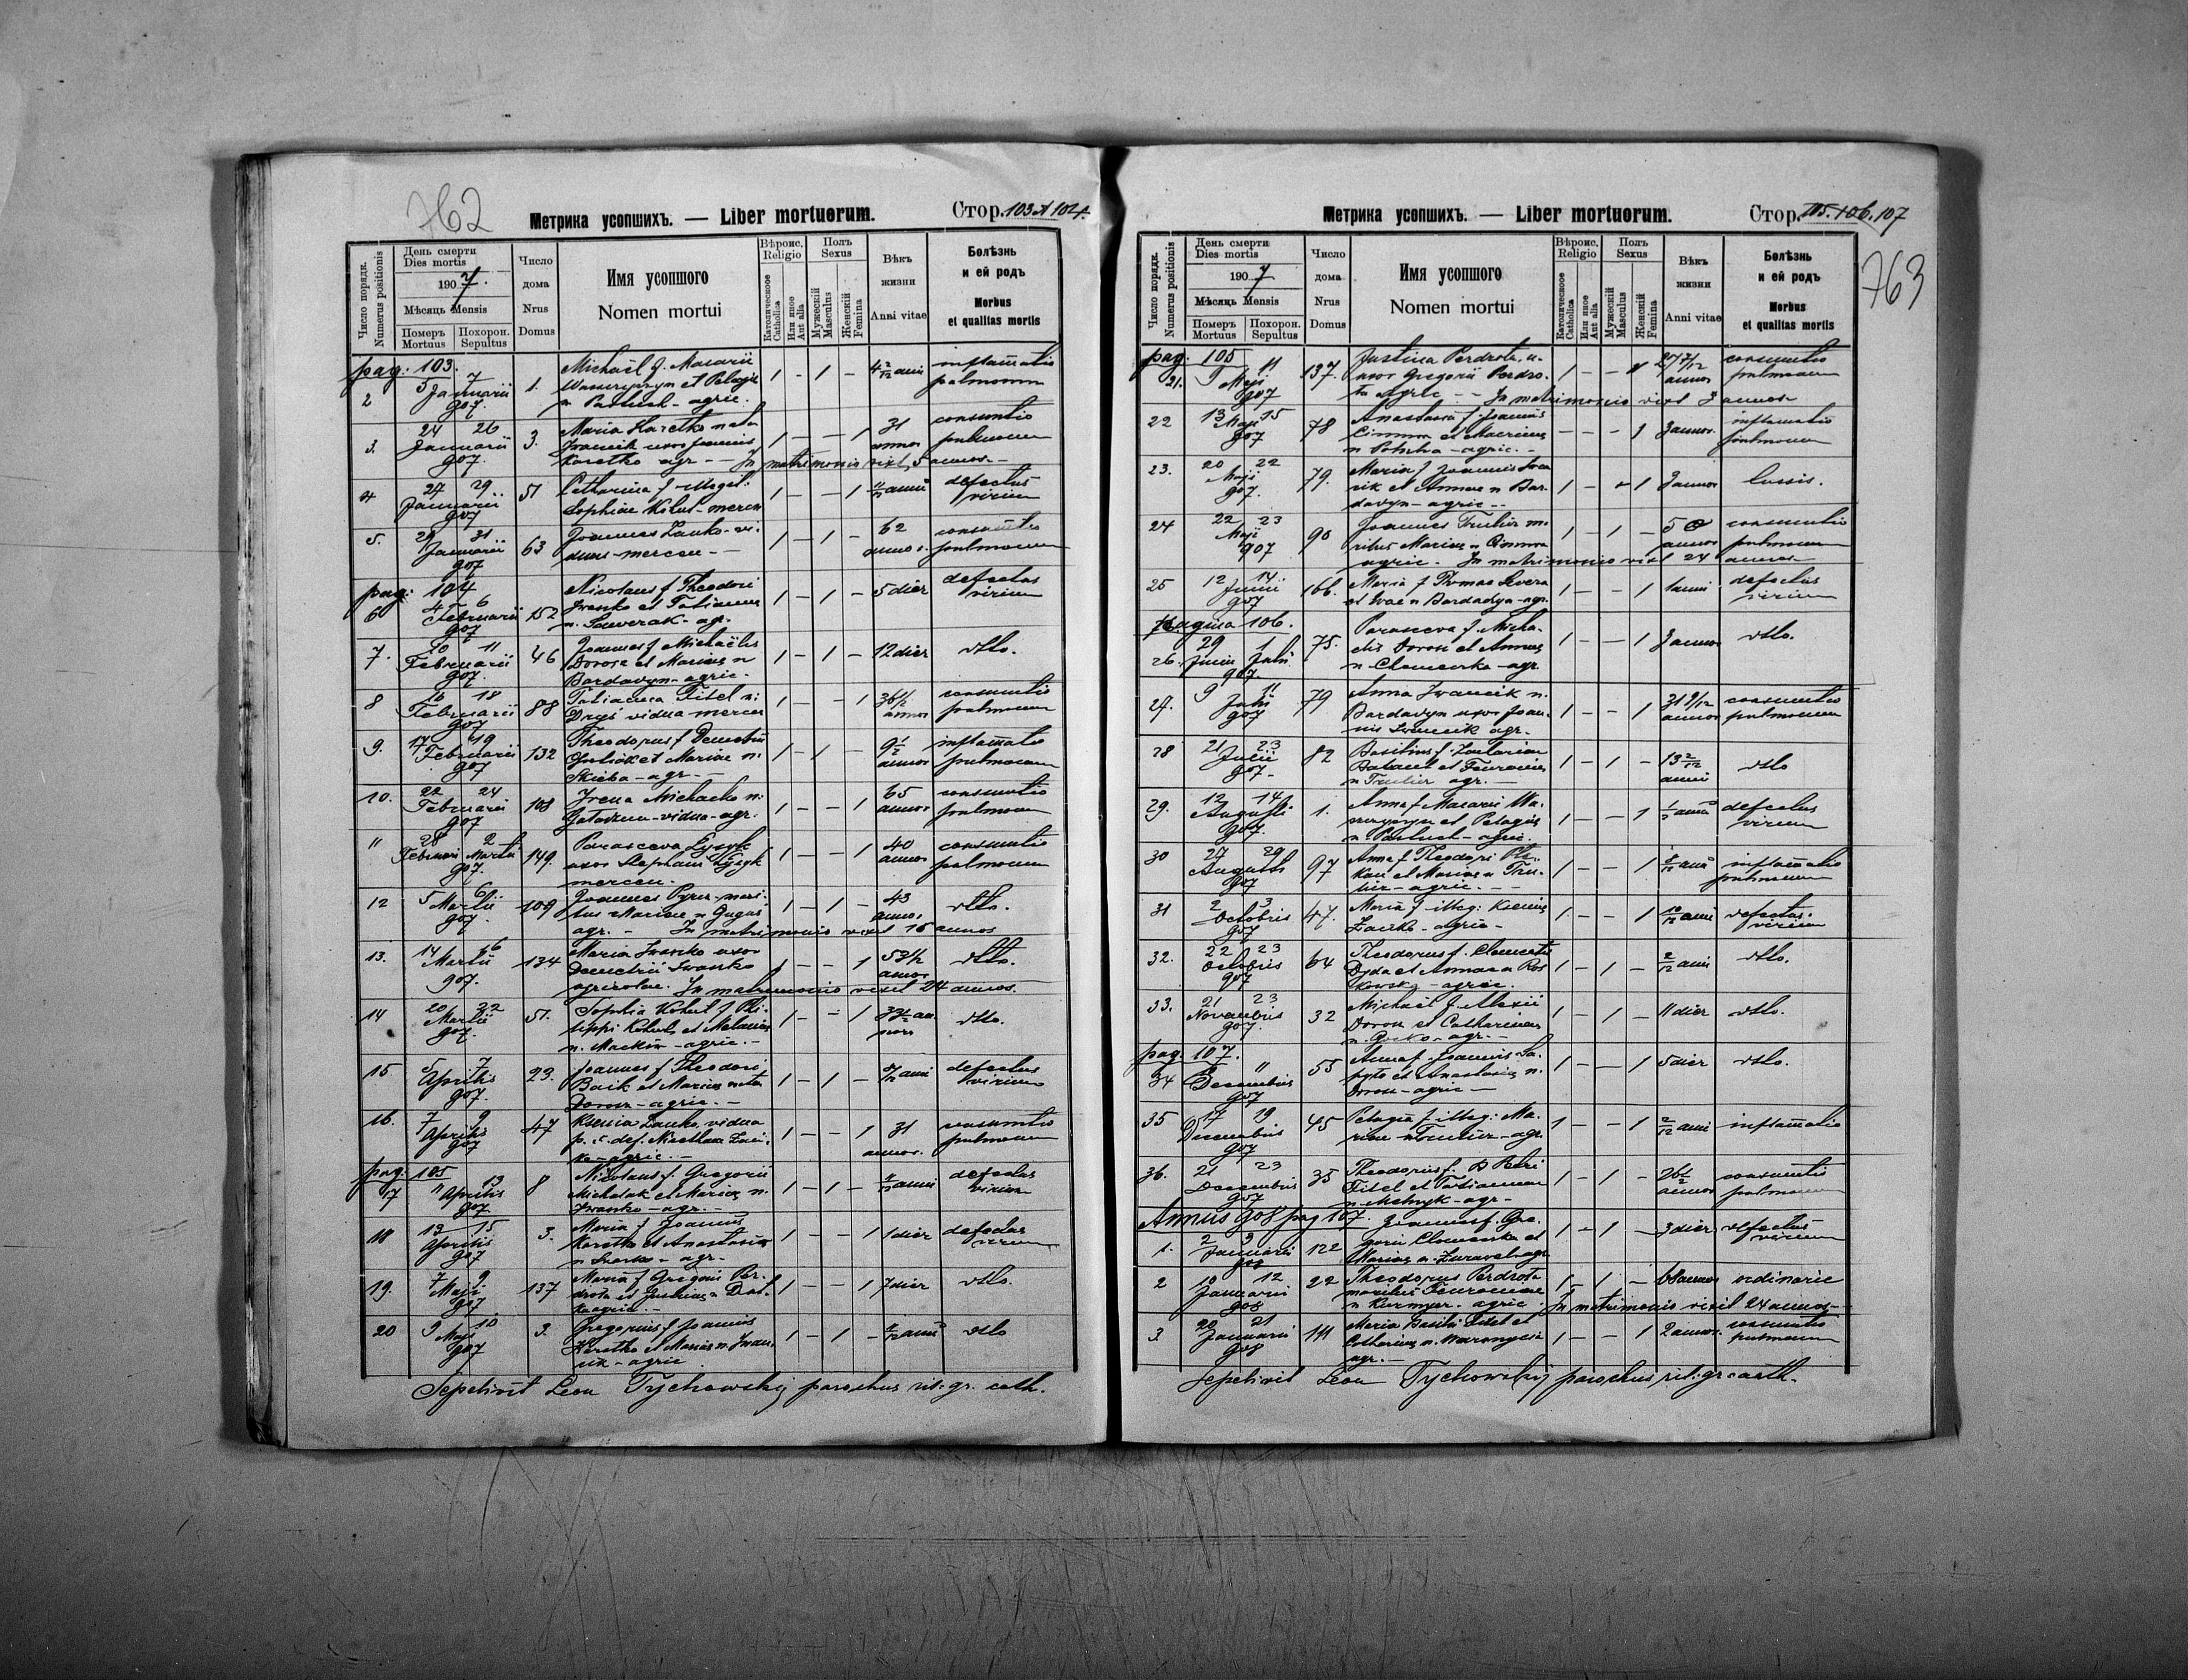 762
Метрика усопшихъ. — Liber mortuorum.
Стор. 103 et 104.
Число порядк. Numerus positionis
День смерти Dies mortis
1907.
Мѣсяць Mensis
Померъ Mortuus
Похорон. Sepultus
Число дома Nrus Domus
Имя усопшого Nomen mortui
Вѣроис. Religio
Католическое Catholica
Или иное Aut alia
Полъ Sexus
Мужескій Masculus
Женскій Femina
Вѣкъ жизни Anni vitae
Болѣзнь и ей родъ Morbus et qualitas mortis
pag: 103.
2 5 7 Januarii 907. 1. Michaël f. Macarii
et Pelagiae
n Pastuch - agric. 1 - 1 - 4 2/12 anni inflam̄atio pulmonum
3. 24 26 Januarii 907. 3. Maria Haretko nata
Iwancik uxor Joannis
Karetko agr - In matrimonio vixit 5 annos - 1 — — 1 31 annos consumtio pulmonum
4 27 29 Januarii 907 51 Catharina f illegit:
Sophiae Kohut - mercen 1 — — 1 11/12 anni defectus virium
5. 29 31 Januarii 907 63 Joannes Lauko - vi-
duus - mercen - 1 — 1 — 62 annos consumtio pulmonum
pag: 104
6 4 6 Februarii 907 152 Nicolaus f Theodori
Iwasko et Tatianae
n. - agr. 1 — 1 — 5 dies defectus virium
7. 10 11 Februarii 907. 46 Joannes f Michaëlis
Dorosz et Mariae n
Bardadyn - agric. 1 — 1 — 12 dies dtto.
8 16 18 Februarii 907 88 Tatianna Fitel n:
Dryś vidua mercen 1 — — 1 36 1/2 annos consumtio pulmonum
9. 17 19 Februarii 907 132 Theodorus f Demetrii
et Mariae n.
Skiba - agr. - 1 — 1 — 9 1/2 annos inflam̄atio pulmonum
10. 22 24 Februarii 907 108 Irena Michasko n:
- vidua - agr. 1 — — 1 65 annos consumtio pulmonum
11 28 2 Februari Martii 907. 149. Parasceva Łysyk
uxor Stephani Łysyk
mercen. 1 — — 1 40 annos consumtio pulmonum
12 5 6 Martii 907. 109 Joannes Pyrz - mari-
tus Mariae n Gugus
agr. - In matrimonio vixit 16 annos 1 — 1 — 43 annos dtto.
13. 14 16 Martii 907. 134 Maria Iwasko uxor
Demetrii Iwasko
agricolae. In matrimonio vixit 24 annos. 1 — — 1 53 1/2 annos dtto.
14 20 22 Martii 907. 51. Sophia Kohut f Phi-
lippi Kohut et Melaniae
n. Maćkiw - agric. - 1 — — 1 annos dtto.
15. 5 7 Aprilis 907. 23. Joannes f Theodori
Baik et Mariae nata
Dorosz - agric. - 1 — 1 — anni defectus virium
16. 7 9 Aprilis 907 47 Ksenia Lauko vidua
p. def. Nicolaum Lau-
ko - agric. - 1 — — 1 31 annos. consumtio pulmonum
pag: 105
17 11 13 Aprilis 907. 8 Nicolaus f. Gregorii
Michalak et Mariae n.
Iwasko - agr. - 1 — 1 — anni defectus virium
18 13 15 Aprilis 907 3. Maria f Joannis
Karetko et Anastasiae
n Iwasko - agr. 1 — — 1 1 dies defectus virium
19. 7 9. Maji 907 137 Maria f Gregorii Per-
drota et Justinae n Dat-
ko agric. - 1 — — 1 7 dies dtto.
20 9 10 Maji 907 3. Gregorius f Joannis
Karetko et Mariae n. Iwan-
cik - agric. 1 — 1 — anni dtto
Sepelivit Leon Tychowskij parochus rit: gr. cath.
763
Метрика усопшихъ. — Liber mortuorum.
Стор. 105. 106. 107
Число порядк. Numerus positionis
День смерти Dies mortis
1907
Мѣсяць Mensis
Померъ Mortuus
Похорон. Sepultus
Число дома Nrus Domus
Имя усопшого Nomen mortui
Вѣроис. Religio
Католическое Catholica
Или иное Aut alia
Полъ Sexus
Мужескій Masculus
Женскій Femina
Вѣкъ жизни Anni vitae
Болѣзнь и ей родъ Morbus et qualitas mortis
pag. 105
21. 9 11 Maji 907 137. Justina Perdrota, u-
uxor Gregorii Perdro-
ta agric - - In matrimonio vixit 3 annos 1 — — 1 annos consumtio pulmonum
22 13 15 Maji 907 78 Anastasia f. Joannis
et Macrinae
n - agric. - — — — 1 3 annos inflamatio pulmonum
23. 20 22 Maji 907. 79. Maria f Joannis Iwan
cik et Annae n Bar-
dadyn - agric - - 1 — — 1 3 annos tussis.
24 22 23 Maji 907 90 Joannes Trulier ma
ritus Mariae n
agric. - In matrimonio vixit 24 annos - 1 — 1 — 50 annos consumtio pulmonum
25 12 14 Junii 907 166. Maria f Thomae Severa
et Evae n Bardadyn - agr. 1 — — 1 1 anni defectus virium
pagina 106.
26. 29 1 Junii Julii 907 75. Parasceva f. Micha-
elis Dorosz et Annae
n Clemenko - agr 1 — — 1 3 annos dtto.
27. 9 11 Julii 907 79 Anna Iwancik n.
Bardadyn uxor Joan-
nis Iwancik agr. 1 — — 1 31 9/12 annos consumtio pulmonum
28 21 23 Julii 907 - 82 Basilius f.
et
n Trulier agr. - 1 — 1 — 13 2/12 anni dtto
29. 12 14 Augusti 907. 1. Anna f Macarii
et Pelagiae
n Pastuch - agric. 1 — — 1 anni defectus virium
30 27 29 Augusti 907 97 Anna f Theodori
et Mariae n Tru-
lier - agric. - - 1 — — 1 anni inflam̄atio pulmonum
31 2 3 Octobris 907 47. Maria f illeg: Kseniae
Lauko - agric - 1 — — 1 10/12 anni defectus virium
32. 22 23 Octobris 907 64 Theodorus f. Clementis
Dyda et Annae n
- agric. 1 — 1 — 2/12 anni dtto.
33. 21 23 Novembris 907. 32 Michaël f. Alexii
Dorosz et Catharinae
n. - agr. - 1 — 1 — 11 dies dtto.
pag. 107.
34 9 11 Decembris 907 55 Anna f. Joannis
et Anastasiae n.
Dorosz - agric - 1 — — 1 5 dies dtto.
35 17 19 Decembris 907 45 Pelagia f illeg: Ma-
riae n Trulier - agr. 1 — — 1 2/12 anni inflam̄atio
36. 21 23 Decembris 907 35 Theodorus f. Petri
Fitel et Tatiannae
n. Melnyk - agr - 1 — 1 — 26 1/2 annos consumtio pulmonum
Annus 908 pag 107.
1. 2 3 Januarii 908 122 Joannes f. Gre-
gorii Clemenko et
Mariae n. Zurawel - agr. 1 — 1 — 3 dies defectus virium
2 10 12 Januarii 908 22 Theodorus Perdrota
maritus
n agric In matrimonio vixit 24 annos - 1 — 1 — annos ordinaria
3. 20 21 Januarii 908 111 Maria Basilii Fitel et
Catharinae n.
agr. - 1 — — 1 2 annos consumtio pulmonum
Sepelivit Leon Tychowskij parochus rit: gr. cath.